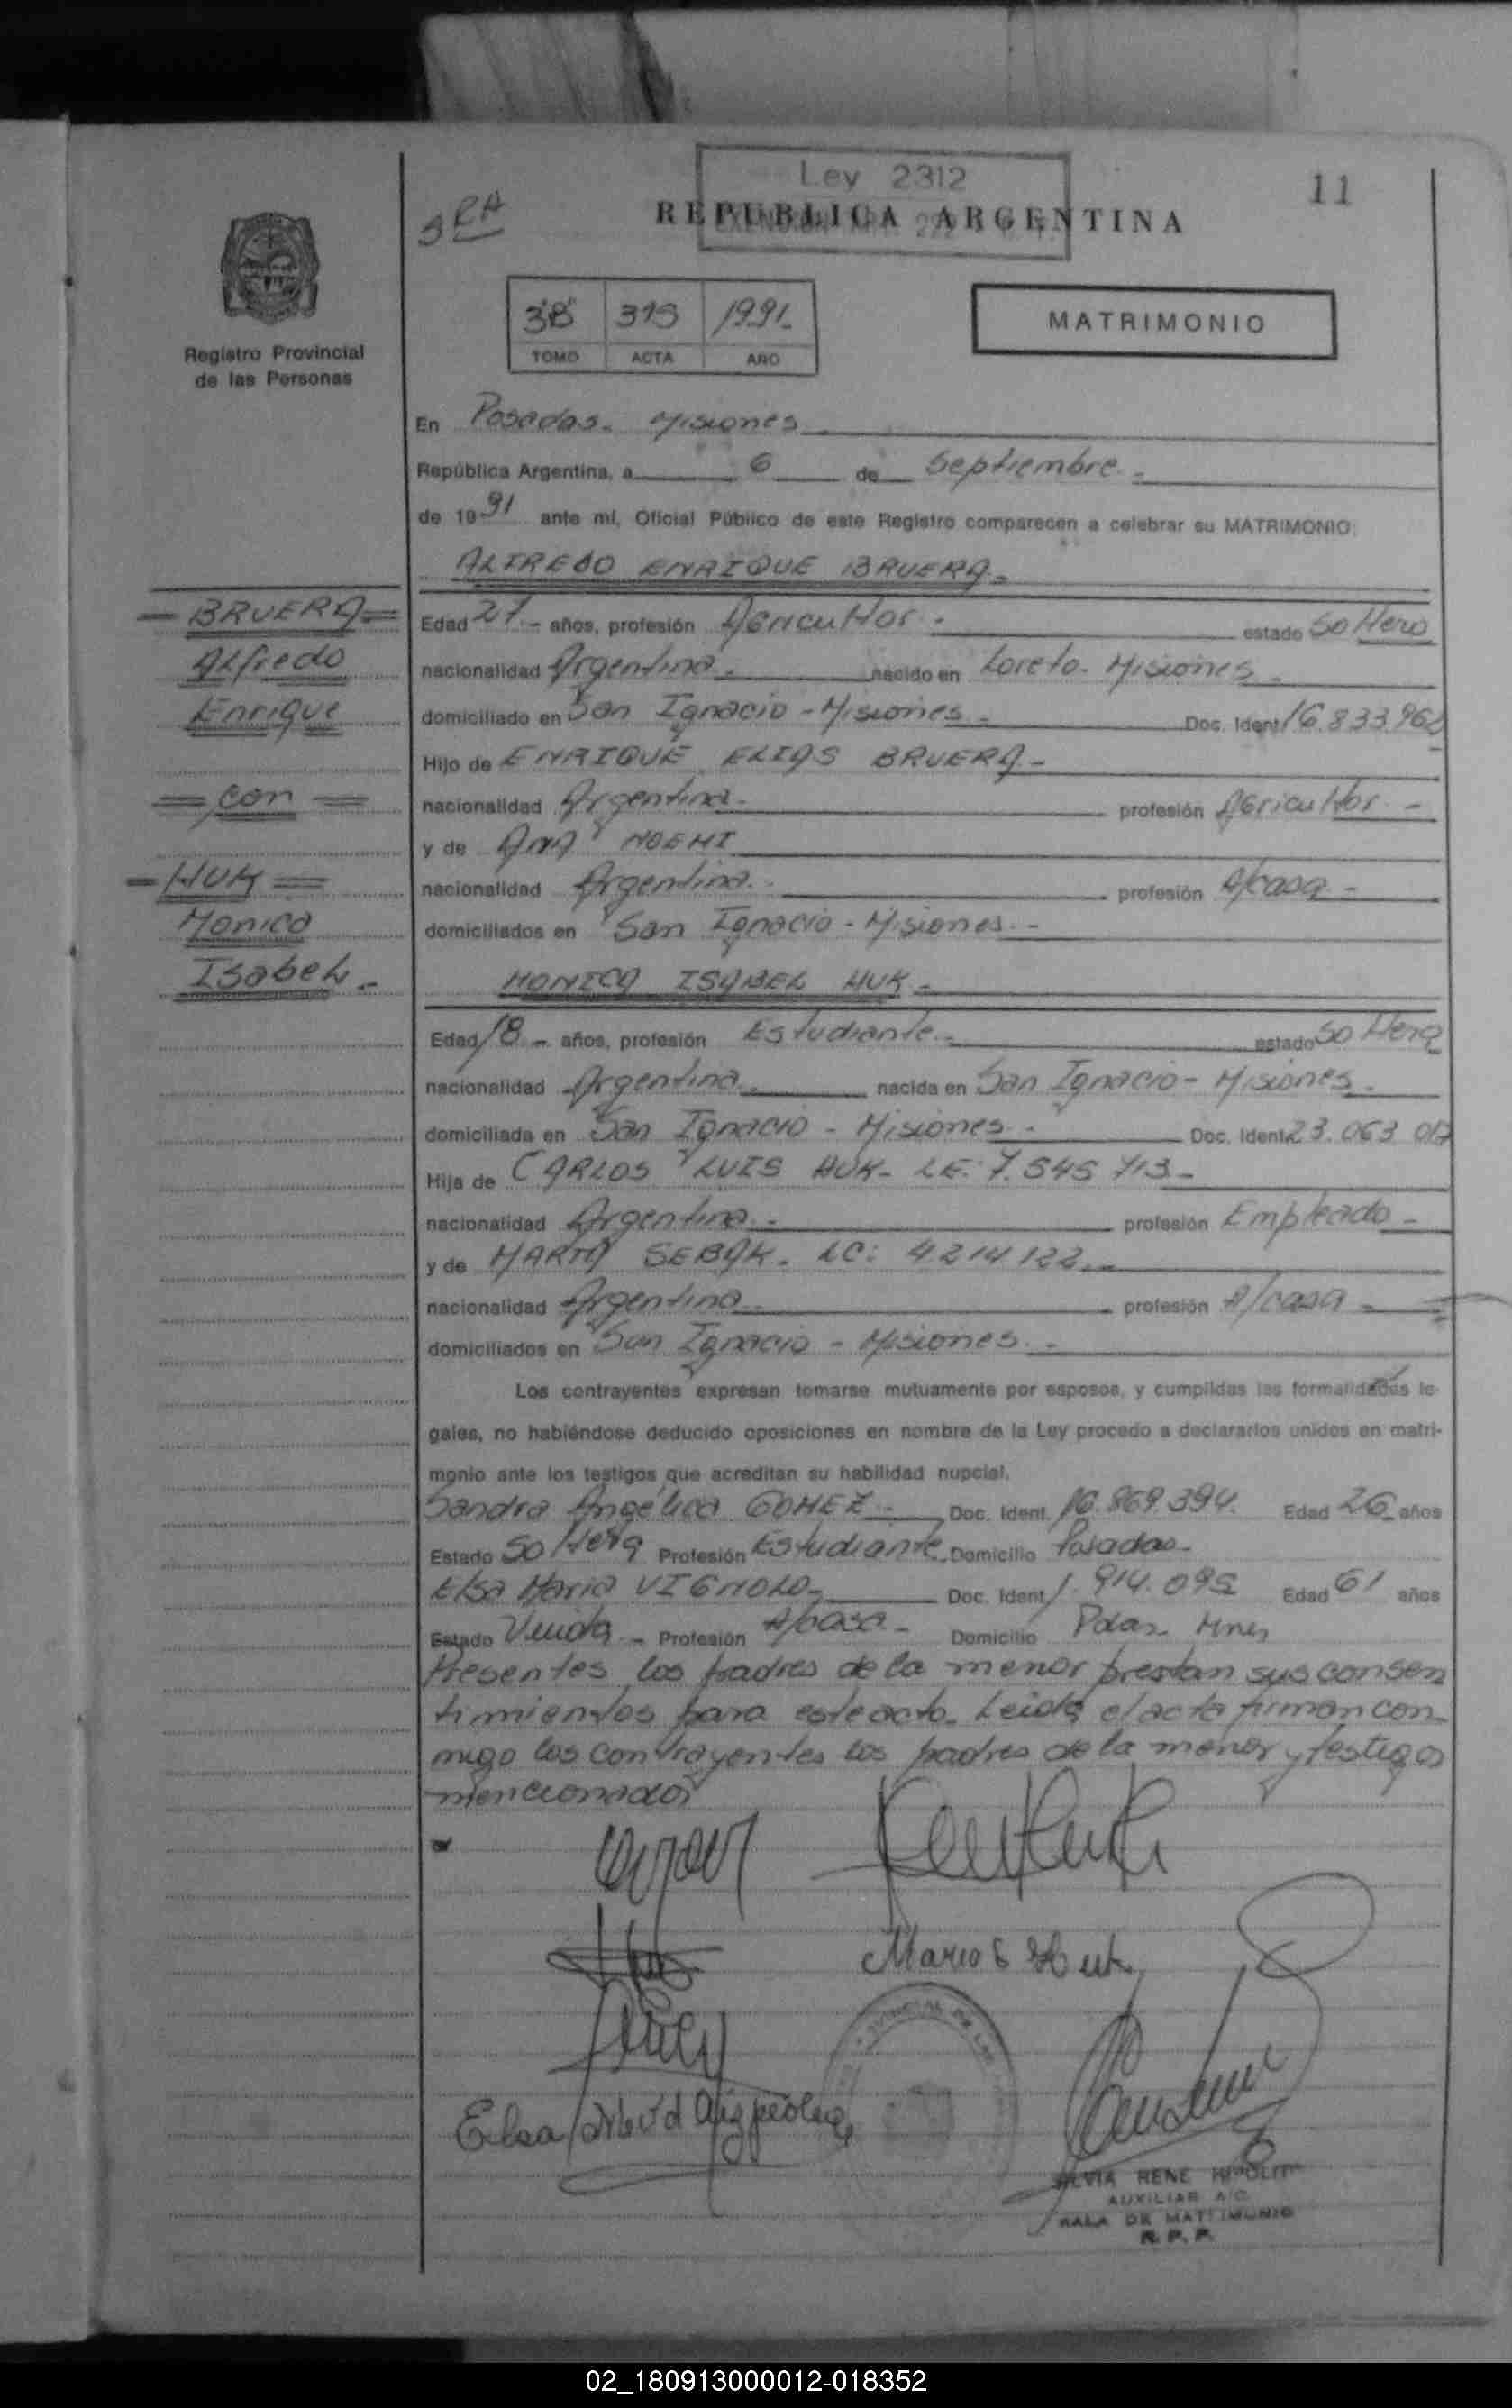 Ley 2312
11
3RA
REPUBLICA ARGENTINA
Registro Provincial
de las Personas
3B 319 1991.
TOMO ACTA AÑO
MATRIMONIO
En Posadas. Misiones
República Argentina, a 6 de Septiembre.-
de 1991 ante mí, Oficial Público de este Registro comparecen a celebrar su MATRIMONIO:
ALFREDO ENRIQUE BRUERA.-
=BRUERA=
Alfredo
Enrique
= con =
=HUK=
Monica
Isabel.-
Edad 27.- años, profesión Agricultor.- estado Soltero
nacionalidad Argentina.- nacido en Loreto- Misiones.-
domiciliado en San Ignacio - Misiones.- Doc. Ident. 16.833.968
Hijo de ENRIQUE ELIAS BRUERA.-
nacionalidad Argentina.- profesión Agricultor.-
y de ANA NOEMI
nacionalidad Argentina.- profesión A/casa.-
domiciliados en San Ignacio - Misiones.-
MONICA ISABEL HUK.-
Edad 18.- años, profesión Estudiante.- estado Soltera
nacionalidad Argentina.- nacida en San Ignacio - Misiones.
domiciliada en San Ignacio - Misiones.- Doc. Ident. 23.063.017
Hija de CARLOS LUIS HUK- LE: 7.545.713-
nacionalidad Argentina.- profesión Empleado-
y de MARTA SEBAK. LC: 4214122.-
nacionalidad Argentina.- profesión A/casa-
domiciliados en San Ignacio - Misiones.-
Los contrayentes expresan tomarse mutuamente por esposos, y cumplidas las formalidades le-
gales, no habiéndose deducido oposiciones en nombre de la Ley procedo a declararlos unidos en matri-
monio ante los testigos que acreditan su habilidad nupcial.
Sandra Angélica GOMEZ- Doc. Ident. 16.869.394. Edad 26 años
Estado Soltera Profesión Estudiante Domicilio Posadas-
Elsa Maria VIGNOLO- Doc. Ident. 1.914.095 Edad 61 años
Estado Viuda.- Profesión A/casa.- Domicilio Pdas. Mnes
Presentes los padres de la menor prestan sus consen
timientos para este acto. Leida el acta firman con-
migo los contrayentes los padres de la menor y testigos
mencionados
SILVIA RENE HIPOLIT
AUXILIAR A/C.
SALA DE MATRIMONIO
R. P. P.
02_180913000012-018352